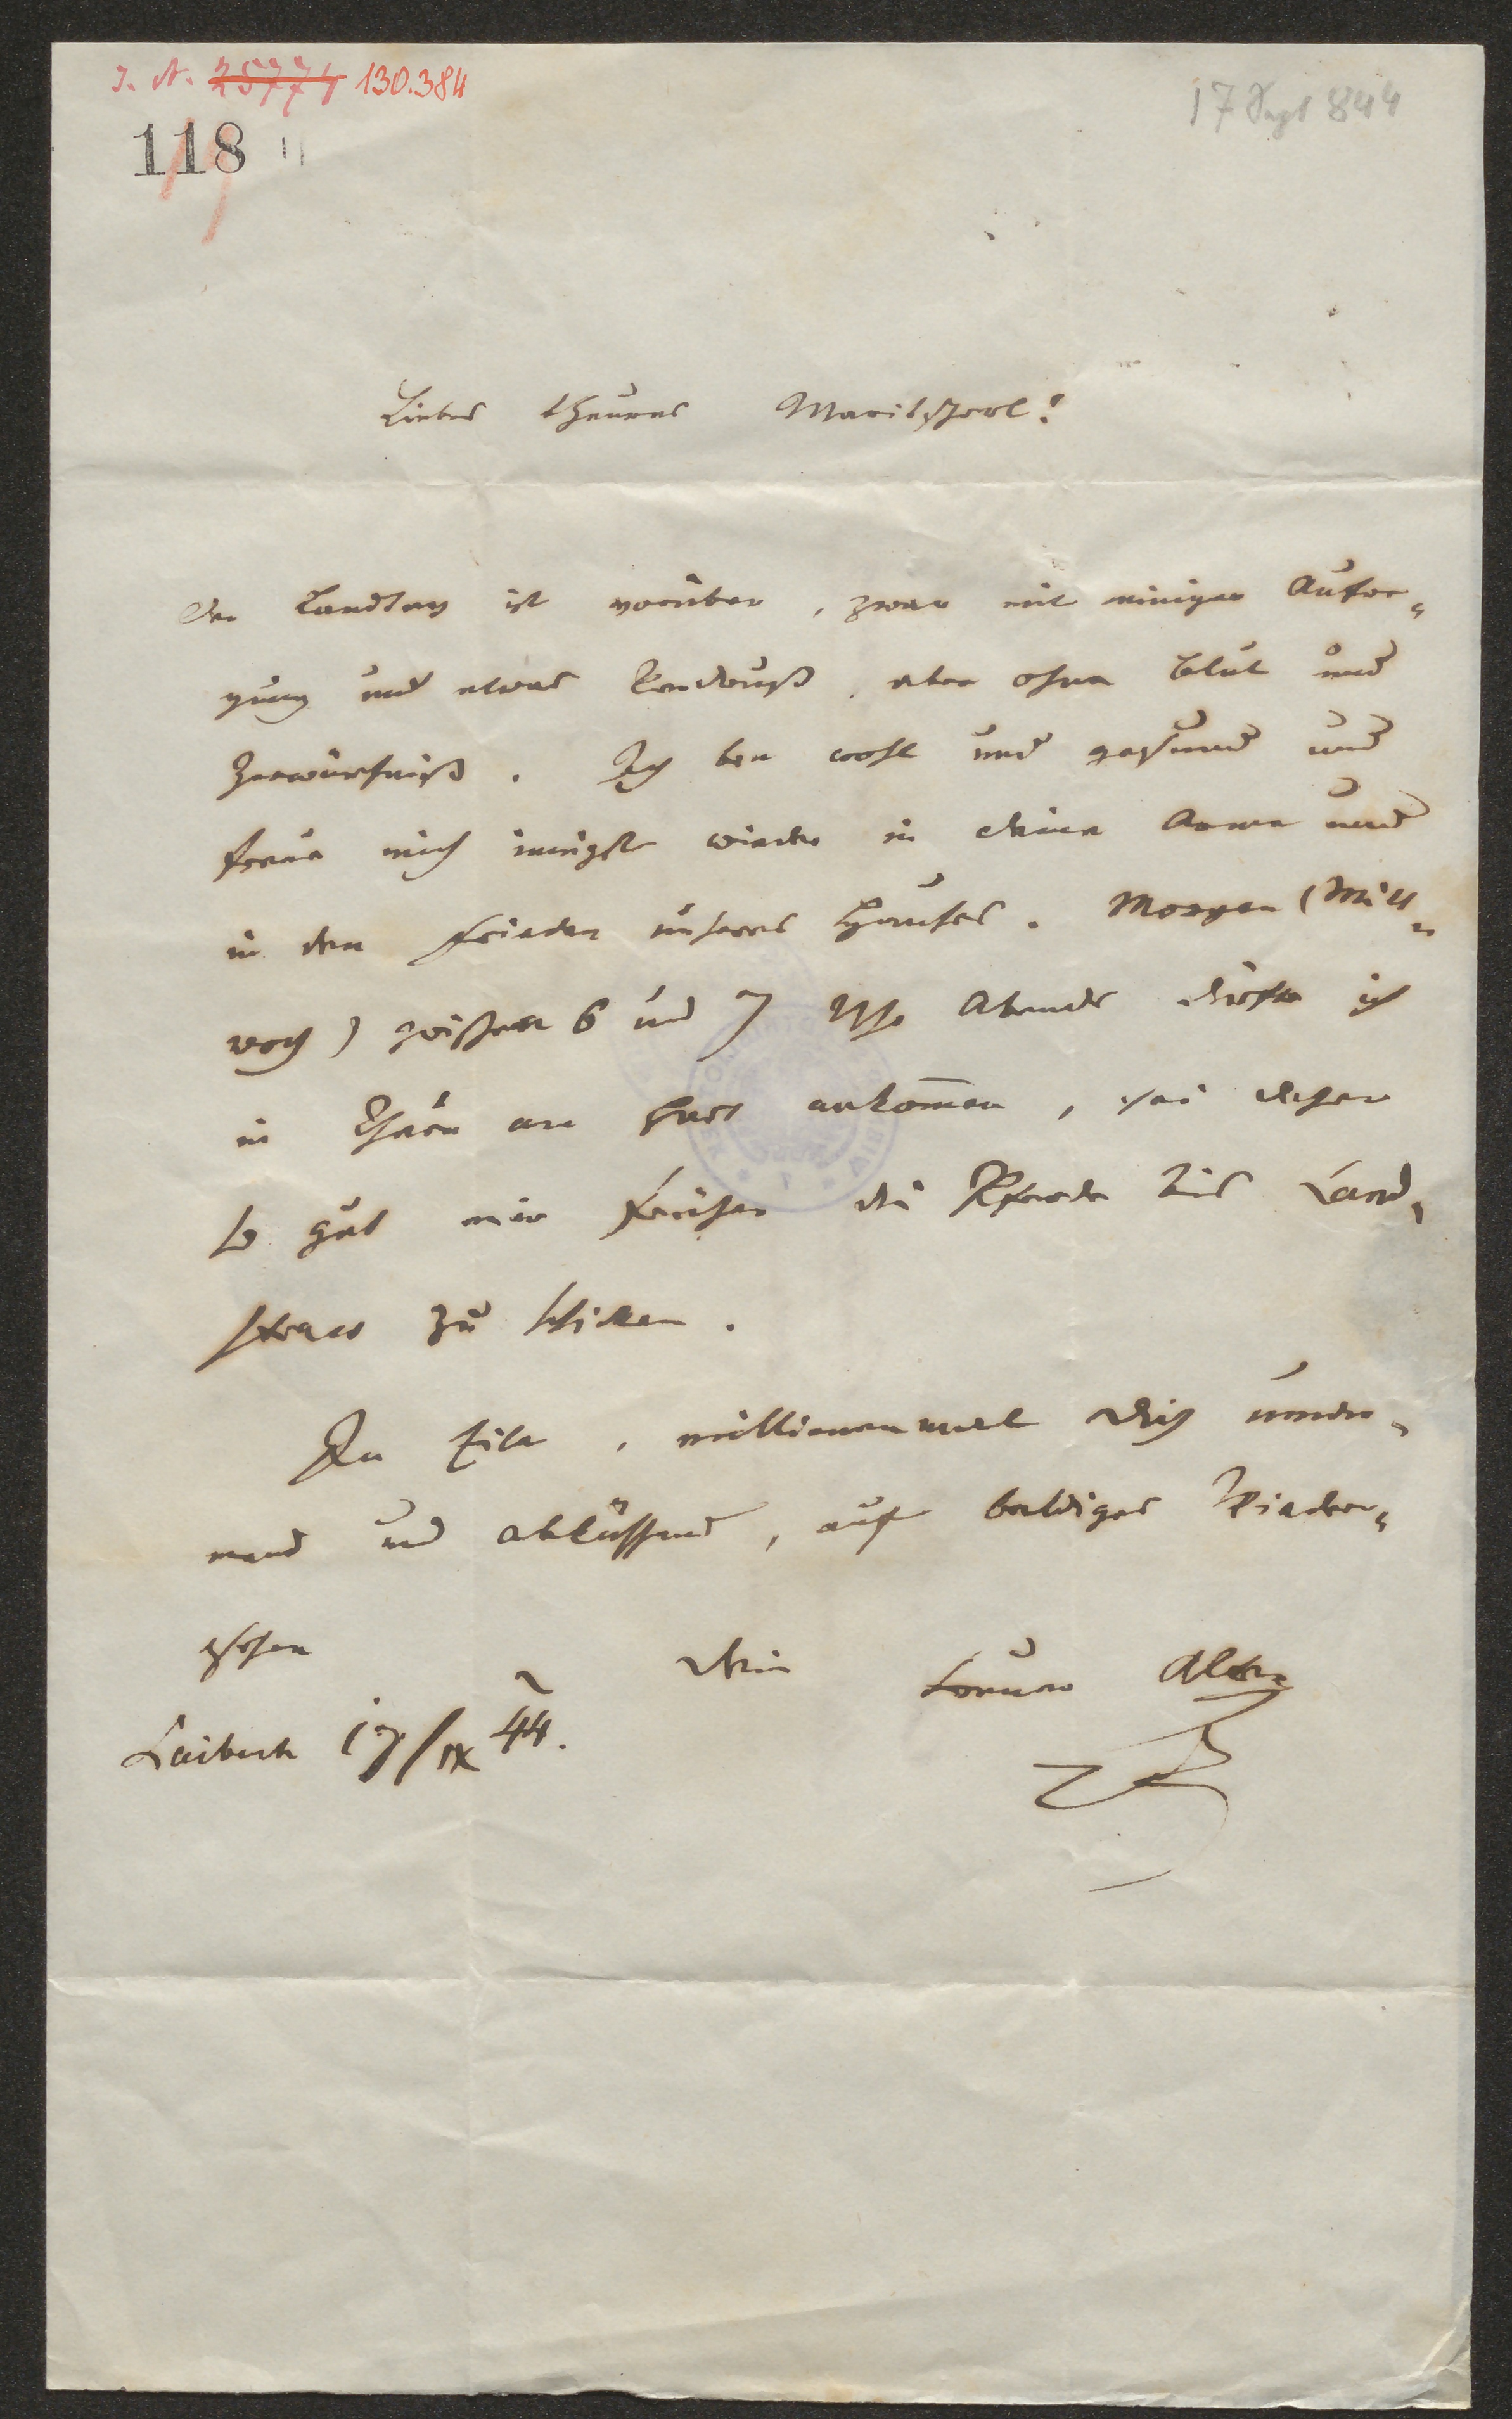 I. N. 25774 130.384
118
17 Sept 844
Liebes theures Maritscherl!
Der Landtag ist vorüber, zwar mit einiger Aufre-
gung und etwas Verdruß, aber ohne Blut und
Zerwürfniß. Ich bin wohl und gesund und
freue mich innigst wieder in deine Arme und
in den Frieden unseres Hauses. Morgen (Mitt-
woch) zwischen 6 und 7 Uhr Abends dürfte ich
in Thurn am Hart ankommen, sei daher
so gut mir früher die Pferde bis Land-
strass zu schicken.
In Eile, millionenmal dich umar-
mend und abküssend, auf baldiges Wieder-
sehen
Dein treuer Alter
Laibach 17/IX 44.